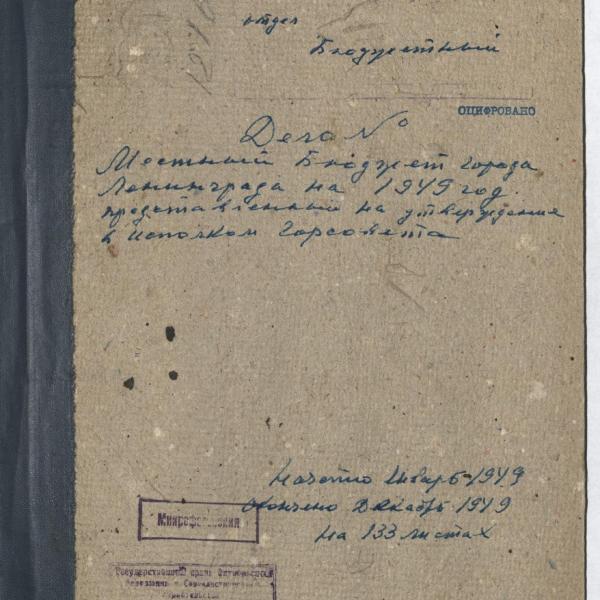 отдел
Бюджетный
ОЦИФРОВАНО
Дело №
Местный Бюджет города
Ленинграда на 1949 год.
представленный на утверждение
в исполком Горсовета
Начато Январь-1949
Окончено Декабрь 1949
на 133 листах
Государственный архив Октябрьской